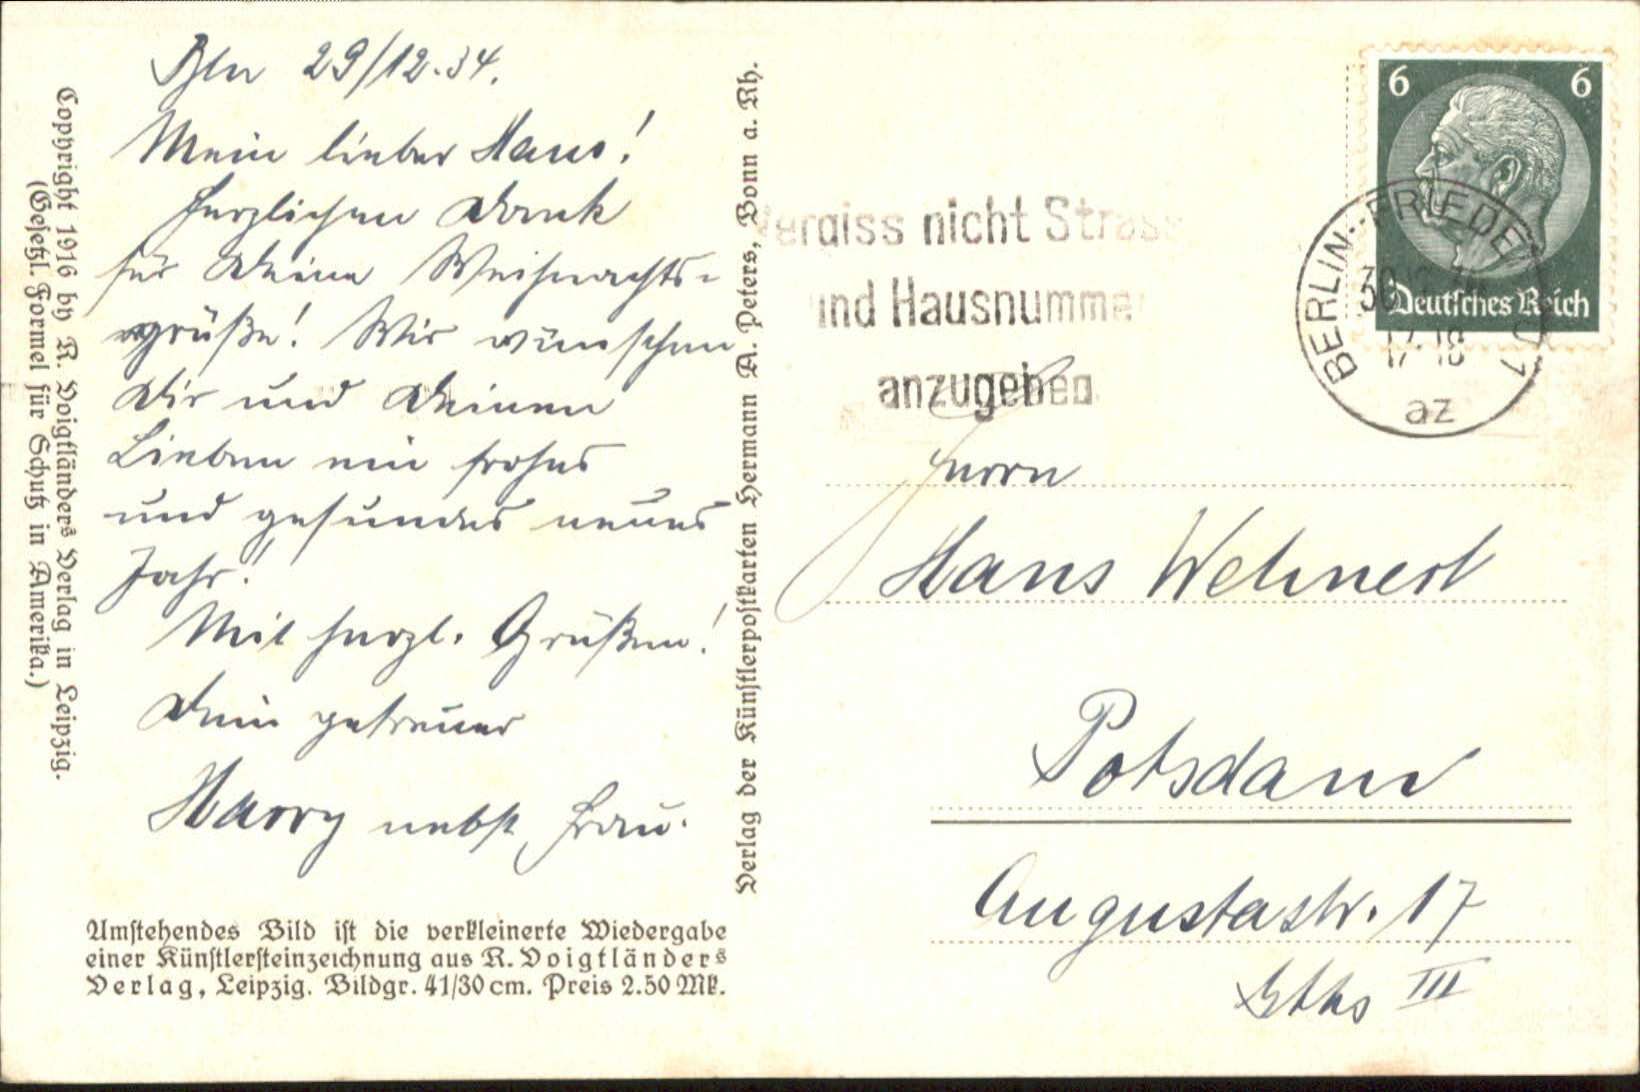 Bln 29/12.34.
Mein lieber Hans!
Herzlichen Dank
für Deine Weihnachts-
grüße! Wir wünschen
Dir und Deinen
Lieben ein frohes
und gesundes neues
Jahr!
Mit herzl. Grüßen!
Dein getreuer
Harry nebst Frau.
Umstehendes Bild ist die verkleinerte Wiedergabe
einer Künstlersteinzeichnung aus R. Voigtländers
Verlag, Leipzig. Bildgr. 41/30 cm. Preis 2.50 Mk.
Copyright 1916 by R. Voigtländers Verlag in Leipzig.
(Gesetzl. Formel für Schutz in Amerika.)
Verlag der Künstlerpostkarten Hermann A. Peters, Bonn a. Rh.
Vergiss nicht Strasse
und Hausnummer
anzugeben
6 6
Deutsches Reich
BERLIN-FRIEDE
17-18
az
Herrn
Hans Wehnert
Potsdam
Augustastr. 17
III